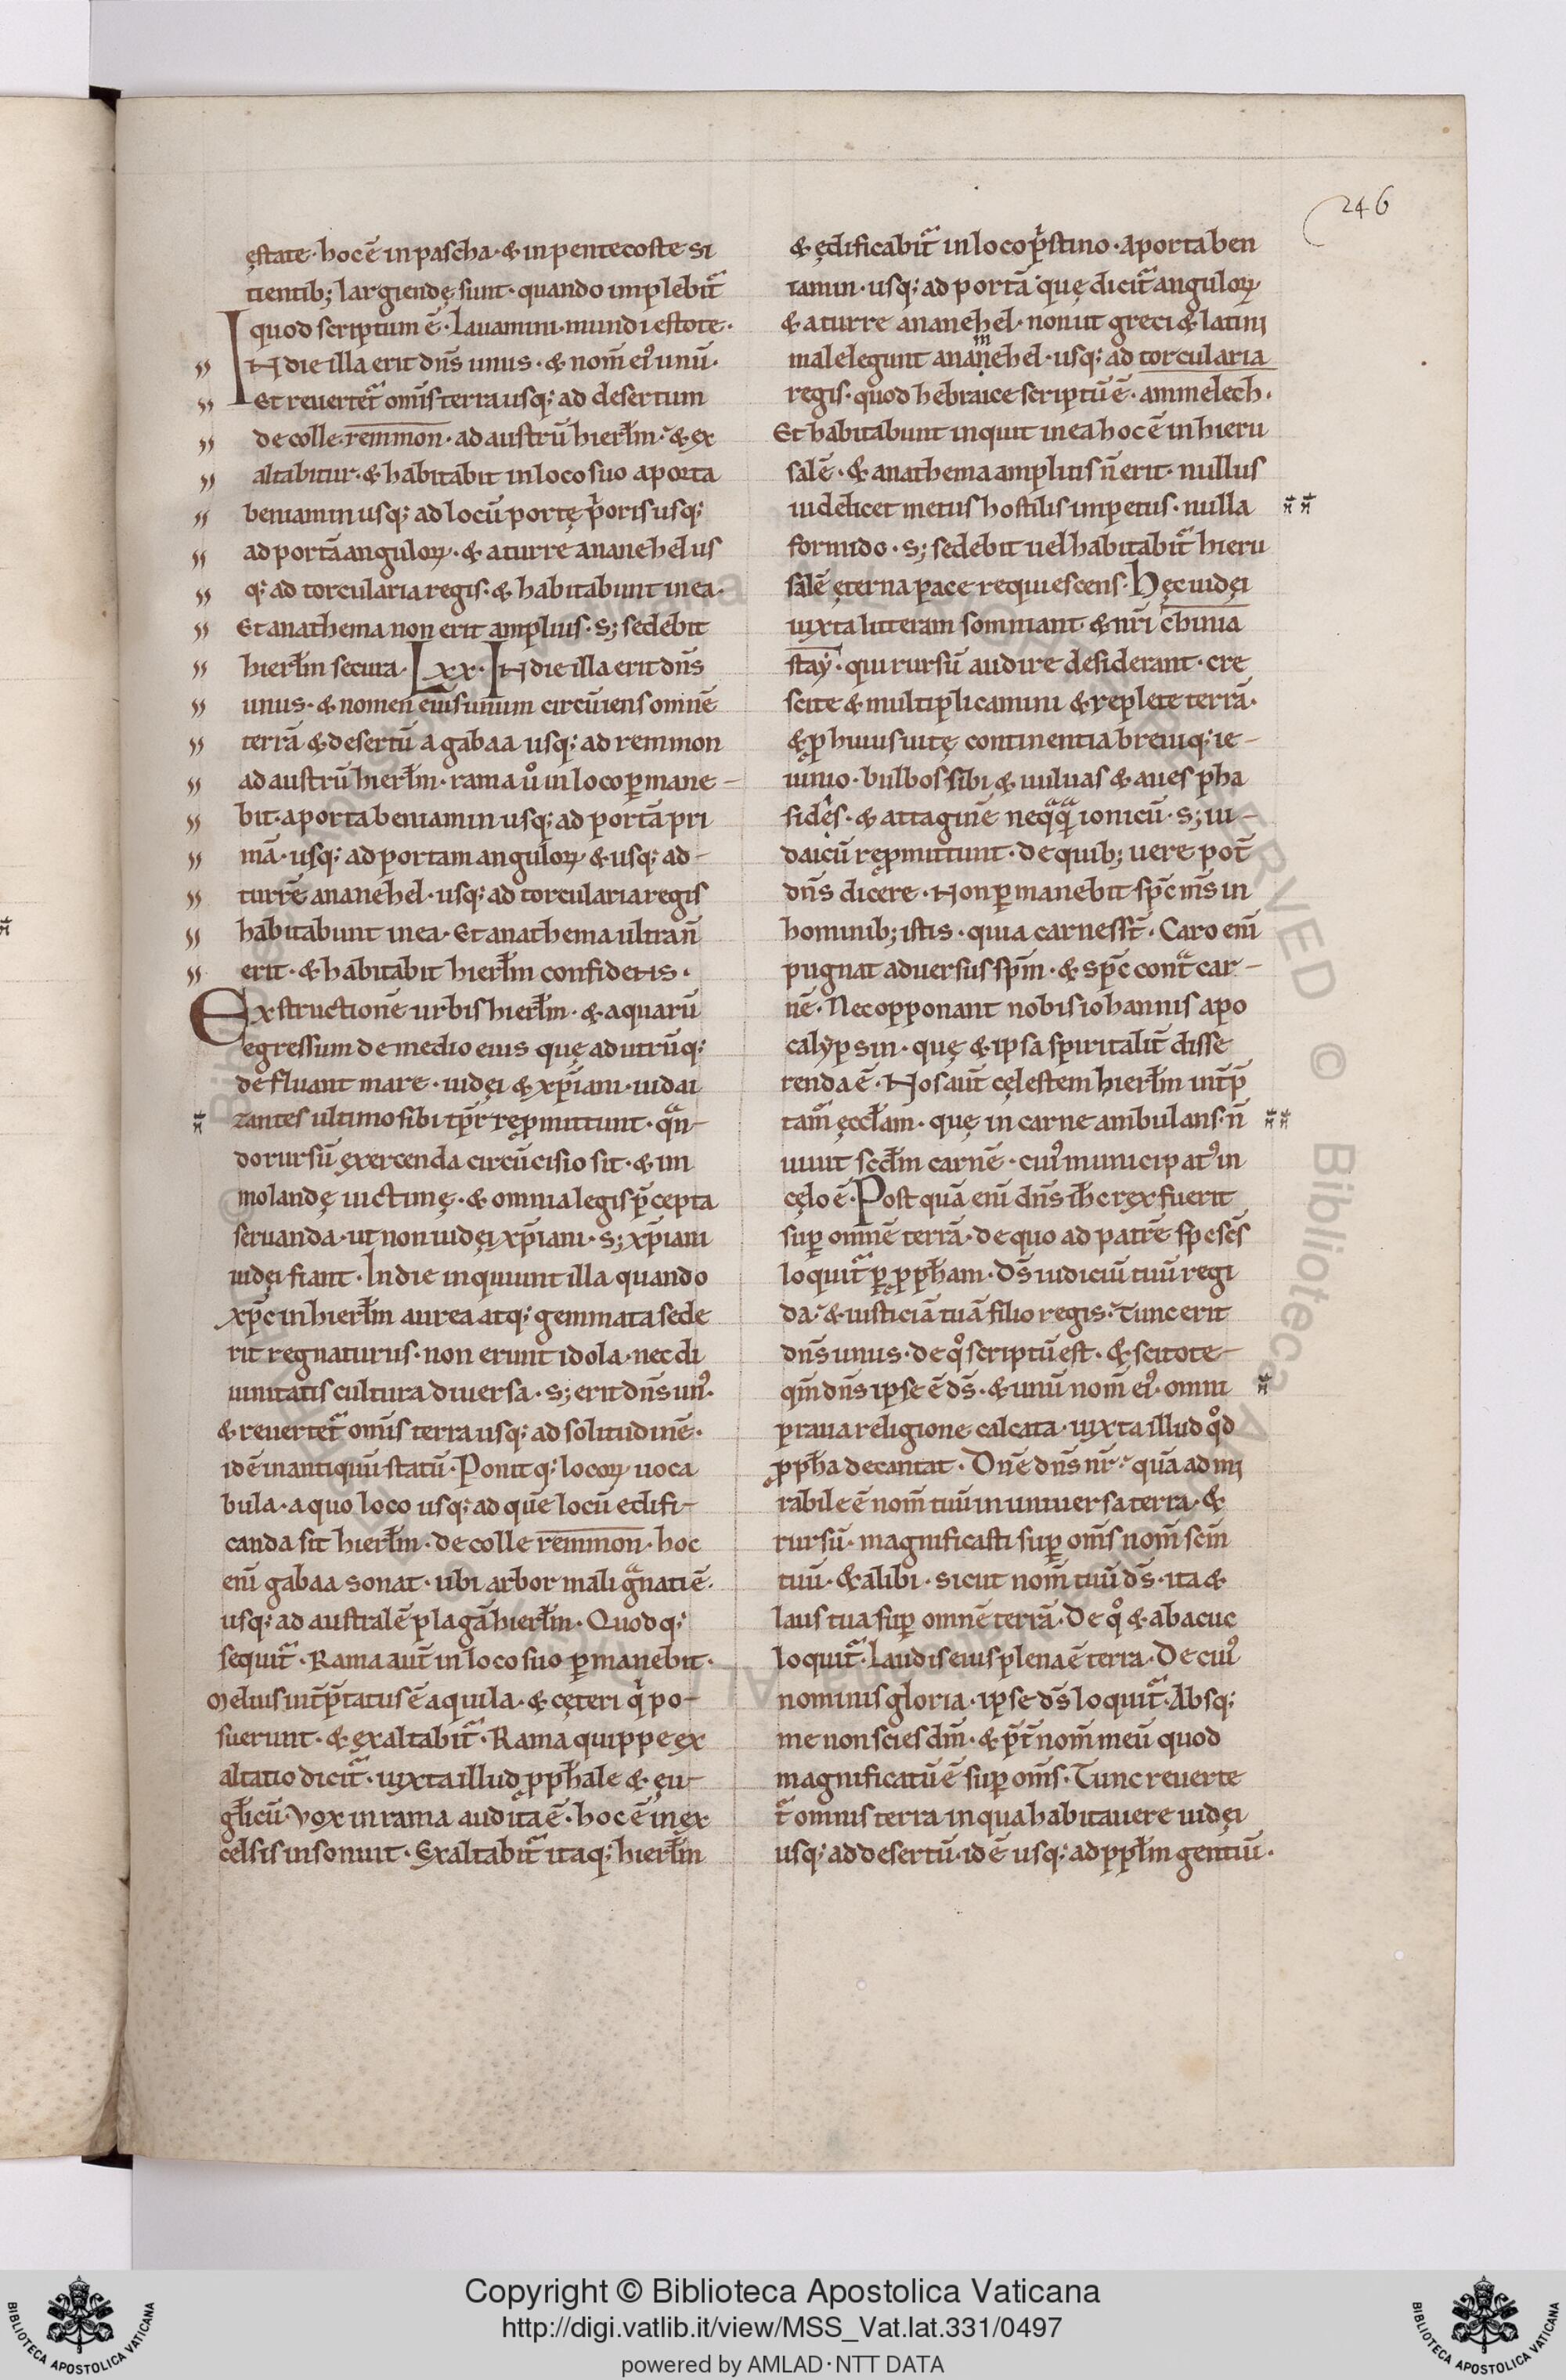 246
ęstate · hoc ē in pascha · & in pentecoste si
tientib; largiendę sunt · quando implebit᷑
quod scriptum ē · Lauamini · mundi estote ·
IN die illa erit dn̄s unus · & nom̄ eiꝰ unū ·
Et reuertet᷑ omīs terra usq; ad desertum
de colle remmon · ad austrū hierl̄m · & ex
altabitur · & habitabit in loco suo a porta
beniamin usq; ad locū portę p̄oris usq;
ad portā anguloꝝ · & a turre ananehel us
q; ad torcularia regis · & habitabunt in ea ·
Et anathema non erit amplius · s; sedebit
hierl̄m secura · Lxx · IN die illa erit dn̄s
unus · & nomen eius unum circūiens omnē
terrā & desertū a gabaa usq; ad remmon
ad austrū hierl̄m · rama u̓o in loco ꝑmane-
bit · a porta beniamin usq; ad portā pri
mā · usq; ad portam anguloꝝ & usq; ad-
turrē ananehel · usq; ad torcularia regis
habitabunt in ea · Et anathema ultra n̄
erit · & habitabit hierl̄m confidens ·
Exstructionē urbis hierl̄m · & aquarū
egressum de medio eius quę ad utrūq;
defluant mare · iudęi & xp̄iani · iudai
zantes ultimo sibi tp̄r reꝓmittunt · qᵃn-
do rursū exercenda circūcisio sit · & im
molandę uictimę · & omnia legis p̄cepta
seruanda · ut non iudęi xp̄iani · s; xp̄iani
iudęi fiant · In die inquiunt illa quando
xp̄c in hierl̄m aurea atq; gemmata sede
rit regnaturus · non erunt idola · nec di
uinitatis cultura diuersa · s; erit dn̄s unꝰ ·
& reuertet᷑ omīs terra usq; ad solitudinē ·
id ē in antiquū statū · Ponit q; locoꝝ uoca
bula · a quo loco usq; ad quē locū edifi-
canda sit hierl̄m · de colle remmon · hoc
enī gabaa sonat · ubi arbor mali gᵃnati ē ·
usq; ad australē plagā hierl̄m · Quod q;
sequit᷑ · Rama aut̄ in loco suo ꝑmanebit ·
Melius int̄p̄tatus ē aquila · & cęteri qͥ po-
suerunt · & exaltabit᷑ · Rama quippe ex
altatio dicit᷑ · iuxta illud ꝓph̄ale & eu-
gl̄icū · Vox in rama audita ē · hoc ē in ex
celsis insonuit · Exaltabit᷑ itaq; hierl̄m
& ędificabit᷑ in loco pͥstino · a porta ben
iamin · usq; ad portā quę dicit᷑ anguloꝝ
& a turre ananehel · non ut greci & latini
m
male legunt ananehel · usq; ad torcularia
regis · quod hebraice scriptū ē · ammelech ·
Et habitabunt inquit in ea hoc ē in hieru
salē · & anathema amplius n̄ erit · nullus
uidelicet metus hostilis impetus · nulla
formido · s; sedebit uel habitabit᷑ hieru
salē ęterna pace requiescens · Hęc iudęi
iuxta litteram somniant & nr̄i chinia
stay · qui rursū audire desiderant · cre
scite & multiplicamini & replete terrā ·
& ꝓ huius uitę continentia breuiq; ie-
iunio · bulbos sibi & uuluas & aues pha
sidēs · & attaginē neqᵃqᵃ ionicū · s; iu-
daicū reꝓmittunt · de quib; uere pot̄
dn̄s dicere · Non ꝑmanebit sp̄c m̄s in
hominib; istis · quia carnes st̄ · Caro enī
pugnat aduersus sp̄m · & sp̄c contᵃ car-
nē · Nec opponant nobis iohannis apo
calypsin · quę & ipsa spiritalit̄ disse
renda ē · Nos aut̄ cęlestem hierl̄m int̄p̄
tam᷑ eccl̄am · quę in carne ambulans · n̄
uiuit scd̄m carnē · cuiꝰ municipatꝰ in
cęlo ē · Post quā enī dn̄s ih̄c rex fuerit
suꝑ omnē terrā · de quo ad patrē sp̄c sc̄s
loquit᷑ ꝑ ꝓph̄am · Ds̄ iudiciū tuū regi
da · & iusticiā tuā filio regis · Tunc erit
dn̄s unus · de qͦ scriptū est · & scitote-
qm̄ dn̄s ipse ē ds̄ · & unū nom̄ eiꝰ · omni
praua religione calcata · iuxta illud qͦd
ꝓph̄a decantat · Dn̄e dn̄s nr̄ · quā admi
rabile ē nom̄ tuū in uniuersa terra · &
rursū · magnificasti suꝑ om̄s nom̄ scm̄
tuū · & alibi · sicut nom̄ tuū ds̄ · ita &
laus tua suꝑ omnē terrā · De qͦ & abacuc
loquit᷑ · Laudis eius plena ē terra · De cuiꝰ
nominis gloria · ipse ds̄ loquit᷑ · Absq;
me non scies dm̄ · & p̄t̄ nom̄ meū quod
magnificatū ē suꝑ om̄s · Tunc reuerte
t᷑ omnis terra in qua habitauere iudęi
usq; ad desertū · id ē usq; ad ppl̄m gentiū ·
Copyright © Biblioteca Apostolica Vaticana
http://digi.vatlib.it/view/MSS_Vat.lat.331/0497
powered by AMLAD · NTT DATA
BIBLIOTECA APOSTOLICA VATICANA
BIBLIOTECA APOSTOLICA VATICANA